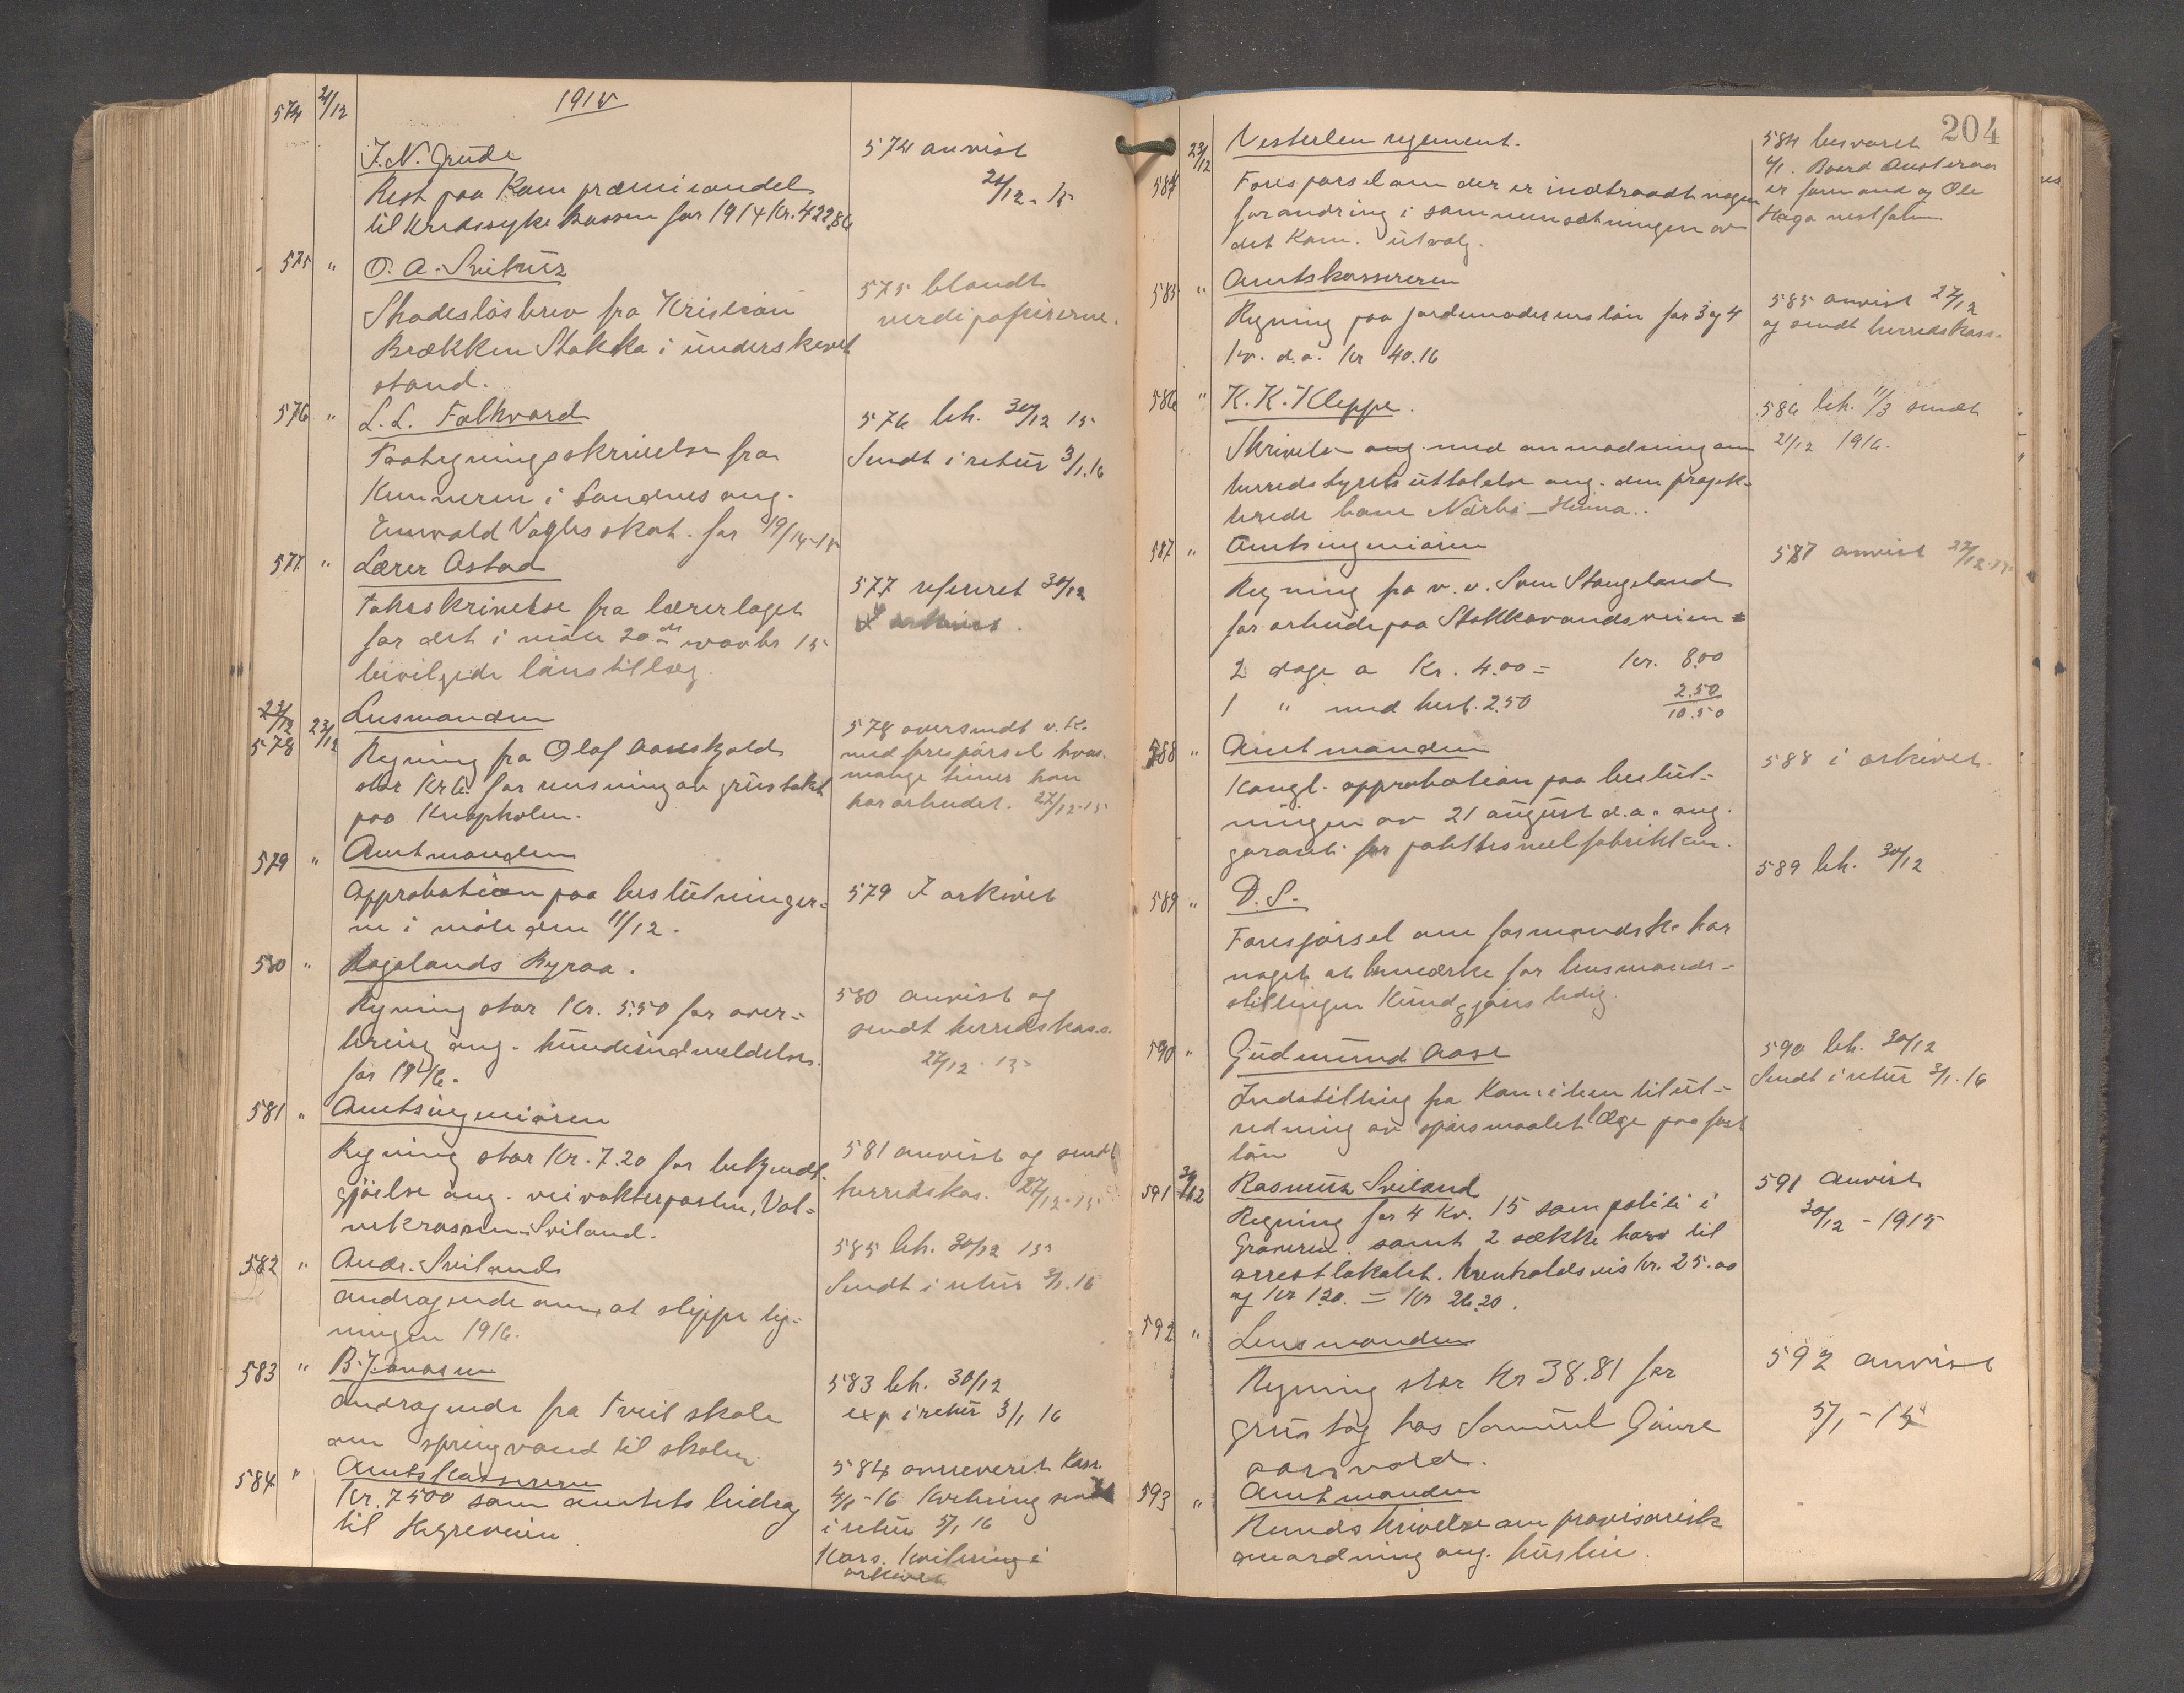 1915
574 21/12
J. N. Grude
Rest paa Kom præmieandel
til Kredssykekassen for 1914 Kr. 422.86
574 anvist
21/12 - 15
575 "
O. A. Svihus
Skadesløsbrev fra Kristian
Brækken Stokka i underskrevet
stand.
575 blandt
verdipapirerne.
576 "
L. L. Folkvord
Paategningsskrivelse fra
Kemneren i Sandnes ang.
Enevald Vagles skat. for 19/14-15
576 beh. 30/12 15
Sendt i retur 3/1.16
577 "
Lærer Astad
Takkskrivelse fra lærerlaget
for det i møte 20de novbr 15
bevilgede lønstillæg.
577 referert 30/12
arkivet.
23/12
578 23/12
Lensmanden
Regning fra Olof Aanskjold
stor Kr 6. for rensning av grustaket
paa Knapholen.
578 oversendt v. K.
med forespørsel hvor
mange timer han
har arbeidet. 27/12-15
579 "
Amtmanden
Approbation paa beslutninger-
ne i møte den 11/12.
579 I arkivet
580 "
Rogalands Byraa.
Regning stor Kr. 5.50 for aver-
tering ang. hundeindmeldelser
for 1916.
580 anvist og
sendt herredskass.
27/12. 15
581 "
Amtsingeniøren
Regning stor Kr. 7.20 for bekjendt-
gjørelse ang. veivokterposten, Vat-
nekrossen-Sviland.
581 anvist og sendt
herredskas. 27/12-15
582 "
Andr. Svilands
andragende om, at slippe lig-
ningen 1916.
585 beh. 30/12 15
Sendt i retur 3/1.16
583 "
B. Jonasen
andragende fra Tveit skole
om springvand til skolen.
583 beh. 30/12
exp i retur 3/1 16
584 "
Amtskassereren
Kr. 7500 som amtets bidrag
til Høgreveien
584 Kass.
4/1-16 Kvittering sendt
i retur 5/1 16
Kass. Kvittering i
arkivet
204
23/12
584
Vesterlen regement.
Forespørsel om der er indtraadt nogen
forandring i sammensætningen av
det Kom. utvalg.
584 besvaret
4/1. Baard Austeraa
er formand og Ole
Haga nestform.
585 "
Amtskassereren
Regning paa jordemoderens løn for 3 og 4
kv. d.a. Kr 40.16
585 anvist 27/12
og sendt herredskass.
586 "
K. K. Kleppe.
Skrivelse ang. med anmodning om
herredstyrets uttalelse ang. den projek-
terede bane Nærbø-Hinna.
586 beh. 11/3 sendt
21/12 1916.
587 "
Amtsingeniøren
Regning fra v. v. Sven Stangeland
for arbeide paa Stokkavandsveien
2 dage a Kr. 4.00 = Kr. 8.00
1 " med hest. 2.50 2.50
10.50
587 anvist 27/12-15
588 "
Amtmanden
Kongl. approbation paa beslut-
ningen av 21 august d.a. ang.
garanti for potetesmelfabrikken.
588 i arkivet.
589 "
D. S.
Forespørsel om formandsk. har
noget at bemærke før lensmands-
stillingen Kundgjøres ledig.
589 beh. 30/12
590 "
Gudmund Aase
Indstilling fra Komiteen til ut-
redning av spørsmaalet Læge paa fast
løn
590 beh. 30/12
Sendt i retur 3/1.16
591 30/12
Rasmus Sviland
Regning for 4 Kv. 15 som politi i
Graveren. samt 2 sække til
arrestlokalet. henholdsvis Kr. 25.00
og Kr 1.20. = Kr 26.20.
591 Anvist
30/12 - 1915
592 "
Lensmanden
Regning stor Kr 38.81 for
grustag hos Samuel Gaure
Aarsvold.
592 anvist
5/1 - 15
593 "
Amtmanden
Rundskrivelse om provisorisk
anordning ang. husleie.